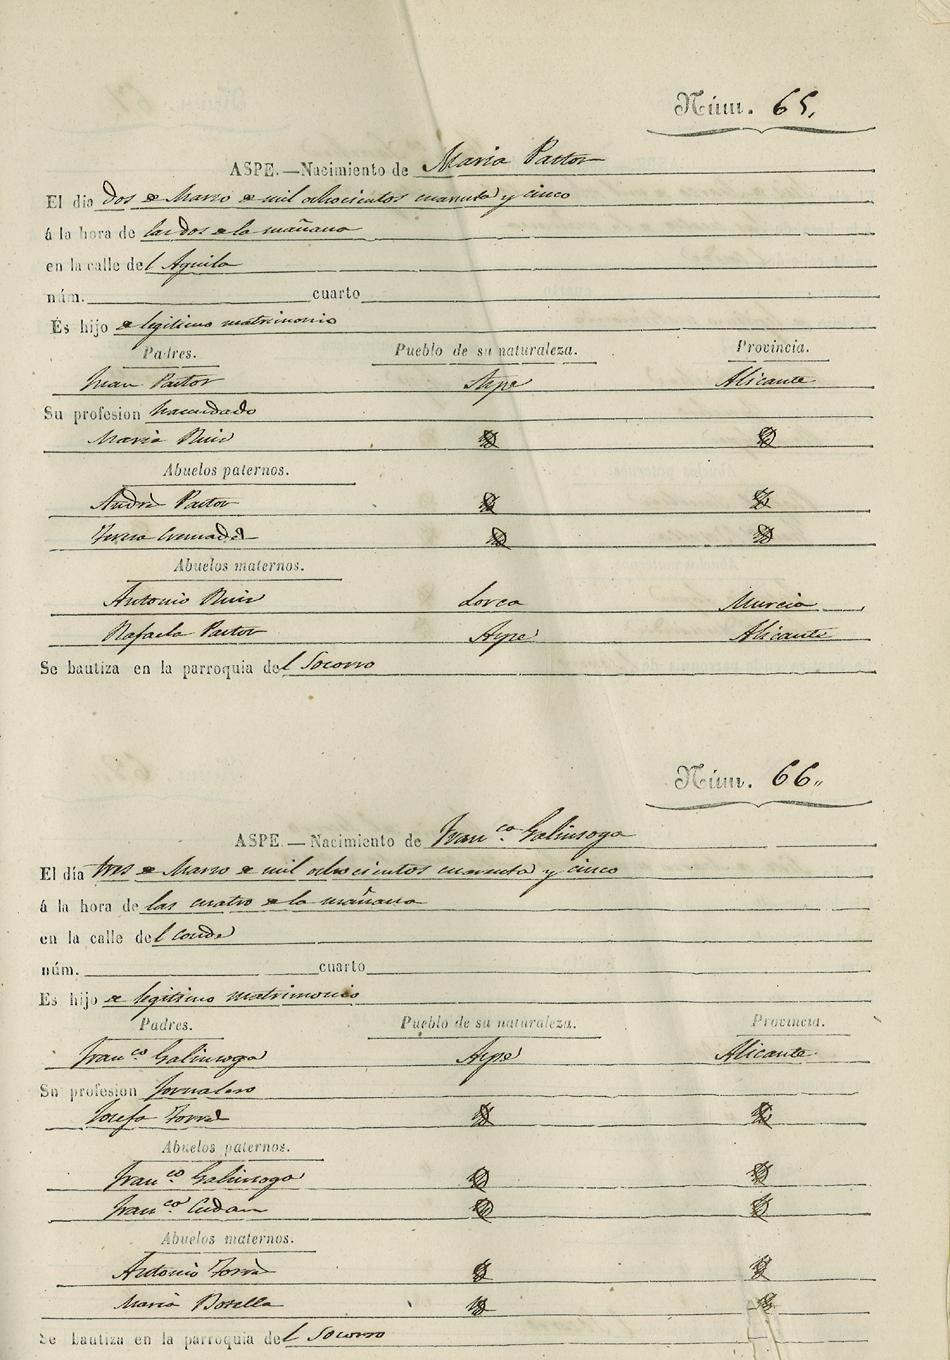 Núm. 65.
ASPE.—Nacimiento de Maria Pastor
El dia dos de Marzo de mil ochocientos cuarenta y cinco
á la hora de las dos de la mañana
en la calle del Aguila
núm. cuarto
És hijo de legitimo matrimonio
Padres. Pueblo de su naturaleza. Provincia.
Juan Pastor Aspe Alicante
Su profesion hacendado
Maria Ruiz
Abuelos paternos.
Andrés Pastor
Teresa Cremades
Abuelos maternos.
Antonio Ruiz Lorca Murcia
Rafaela Pastor Aspe Alicante
Se bautiza en la parroquia del Socorro
Núm. 66.
ASPE.—Nacimiento de Franco. Galinsoga
El día tres de Marzo de mil ochocientos cuarenta y cinco
á la hora de las cuatro de la mañana
en la calle del Conde
núm. cuarto
Es hijo de legitimo matrimonio
Padres. Pueblo de su naturaleza. Provincia.
Franco. Galinsoga Aspe Alicante
Su profesion Jornalero
Josefa Torres
Abuelos paternos.
Franco. Galinsoga
Franca.
Abuelos maternos.
Antonio Torres
Maria Botella
Se bautiza en la parroquia del Socorro